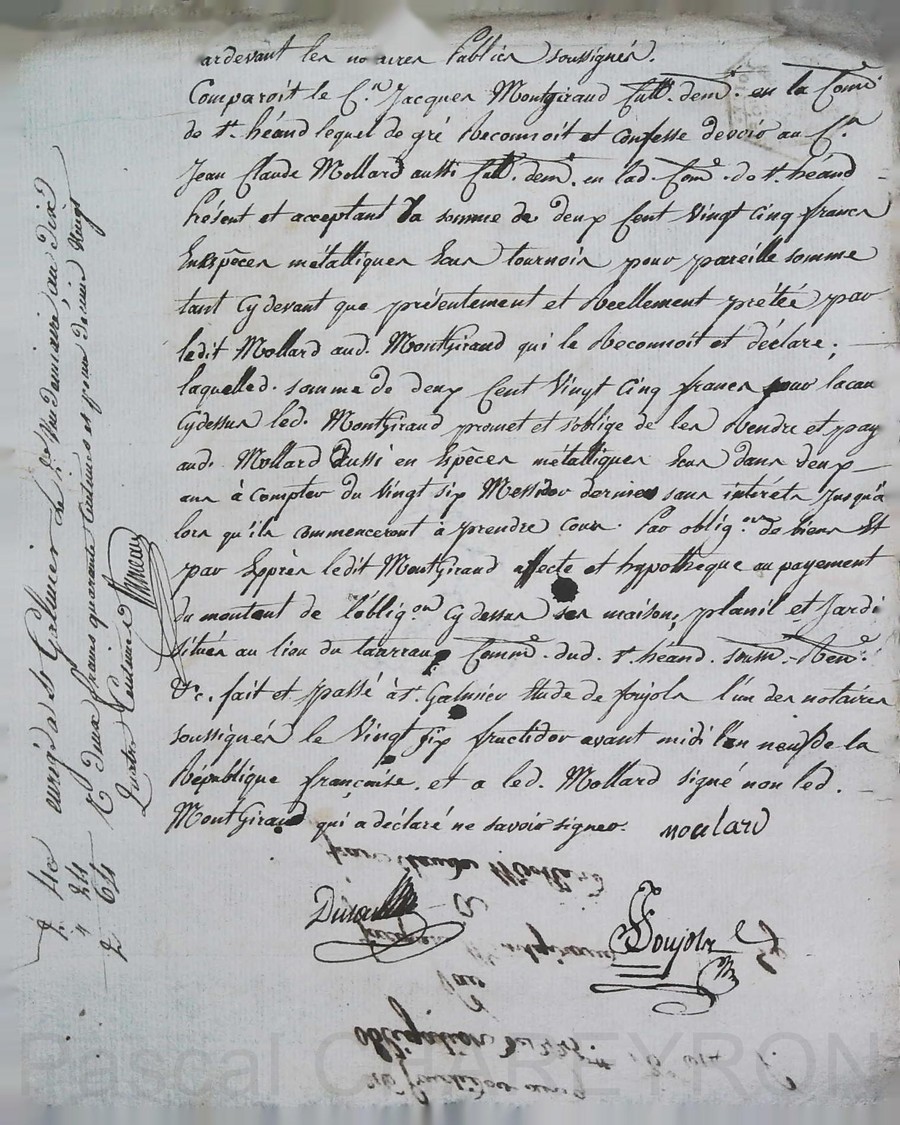 ardevant les no aires Publics soussignés.
Comparoit le C.en Jacques Montgiraud Cult. dem.t en la Com.e
de St. héand lequel de gré Reconnoit et Confesse devoir au C.en
Jean Claude Mollard aussi Cult. dem.t en lad. Com.e de St. héand
Présent et acceptant La somme de deux Cent Vingt Cinq francs
En Espêces métalliques Sous tournois pour pareille somme
tant Cy devant que présentement et Réellement prétée par
ledit Mollard aud. Montgiraud qui le Reconnoit et déclare;
laquelled. somme de deux Cent Vingt Cinq francs pour la cau
Cydessus led. Montgiraud promet et s'oblige de les Rendre et pay
aud. Mollard Aussi en Espêces métalliques Sous dans deux
ans à Compter du Vingt six Messidor dernier sans intérêts Jusqu'a
lors qu'ils Commenceront à prendre Cour. Par oblig.on de biens Et
par Exprès ledit Montgiraud affecte et hypothèque au payement
du montant de l'oblig.on Cydessus ses maison, planil et Jardi
situés au lieu du Commé. dud. St. héand. soum. Ren.
&c. fait et passé à St. Galmier Etude de foujols l'un des notaires
soussignés le Vingt six fructidor avant midi l'an neuf de la
République française. et a led. Mollard signé non led.
MontGiraud qui a déclaré ne savoir signer. moulard
Foujols
enrigé a St Galmier le Vendemiaire an dix
R deux francs quarante Centimes et pour dixieme Vingt
quatre Centimes
2 40
" 24
2 64
Jean Claude Mollard
Par
Obligation du 225
26 fructidor an 9
Pascal CHAREYRON